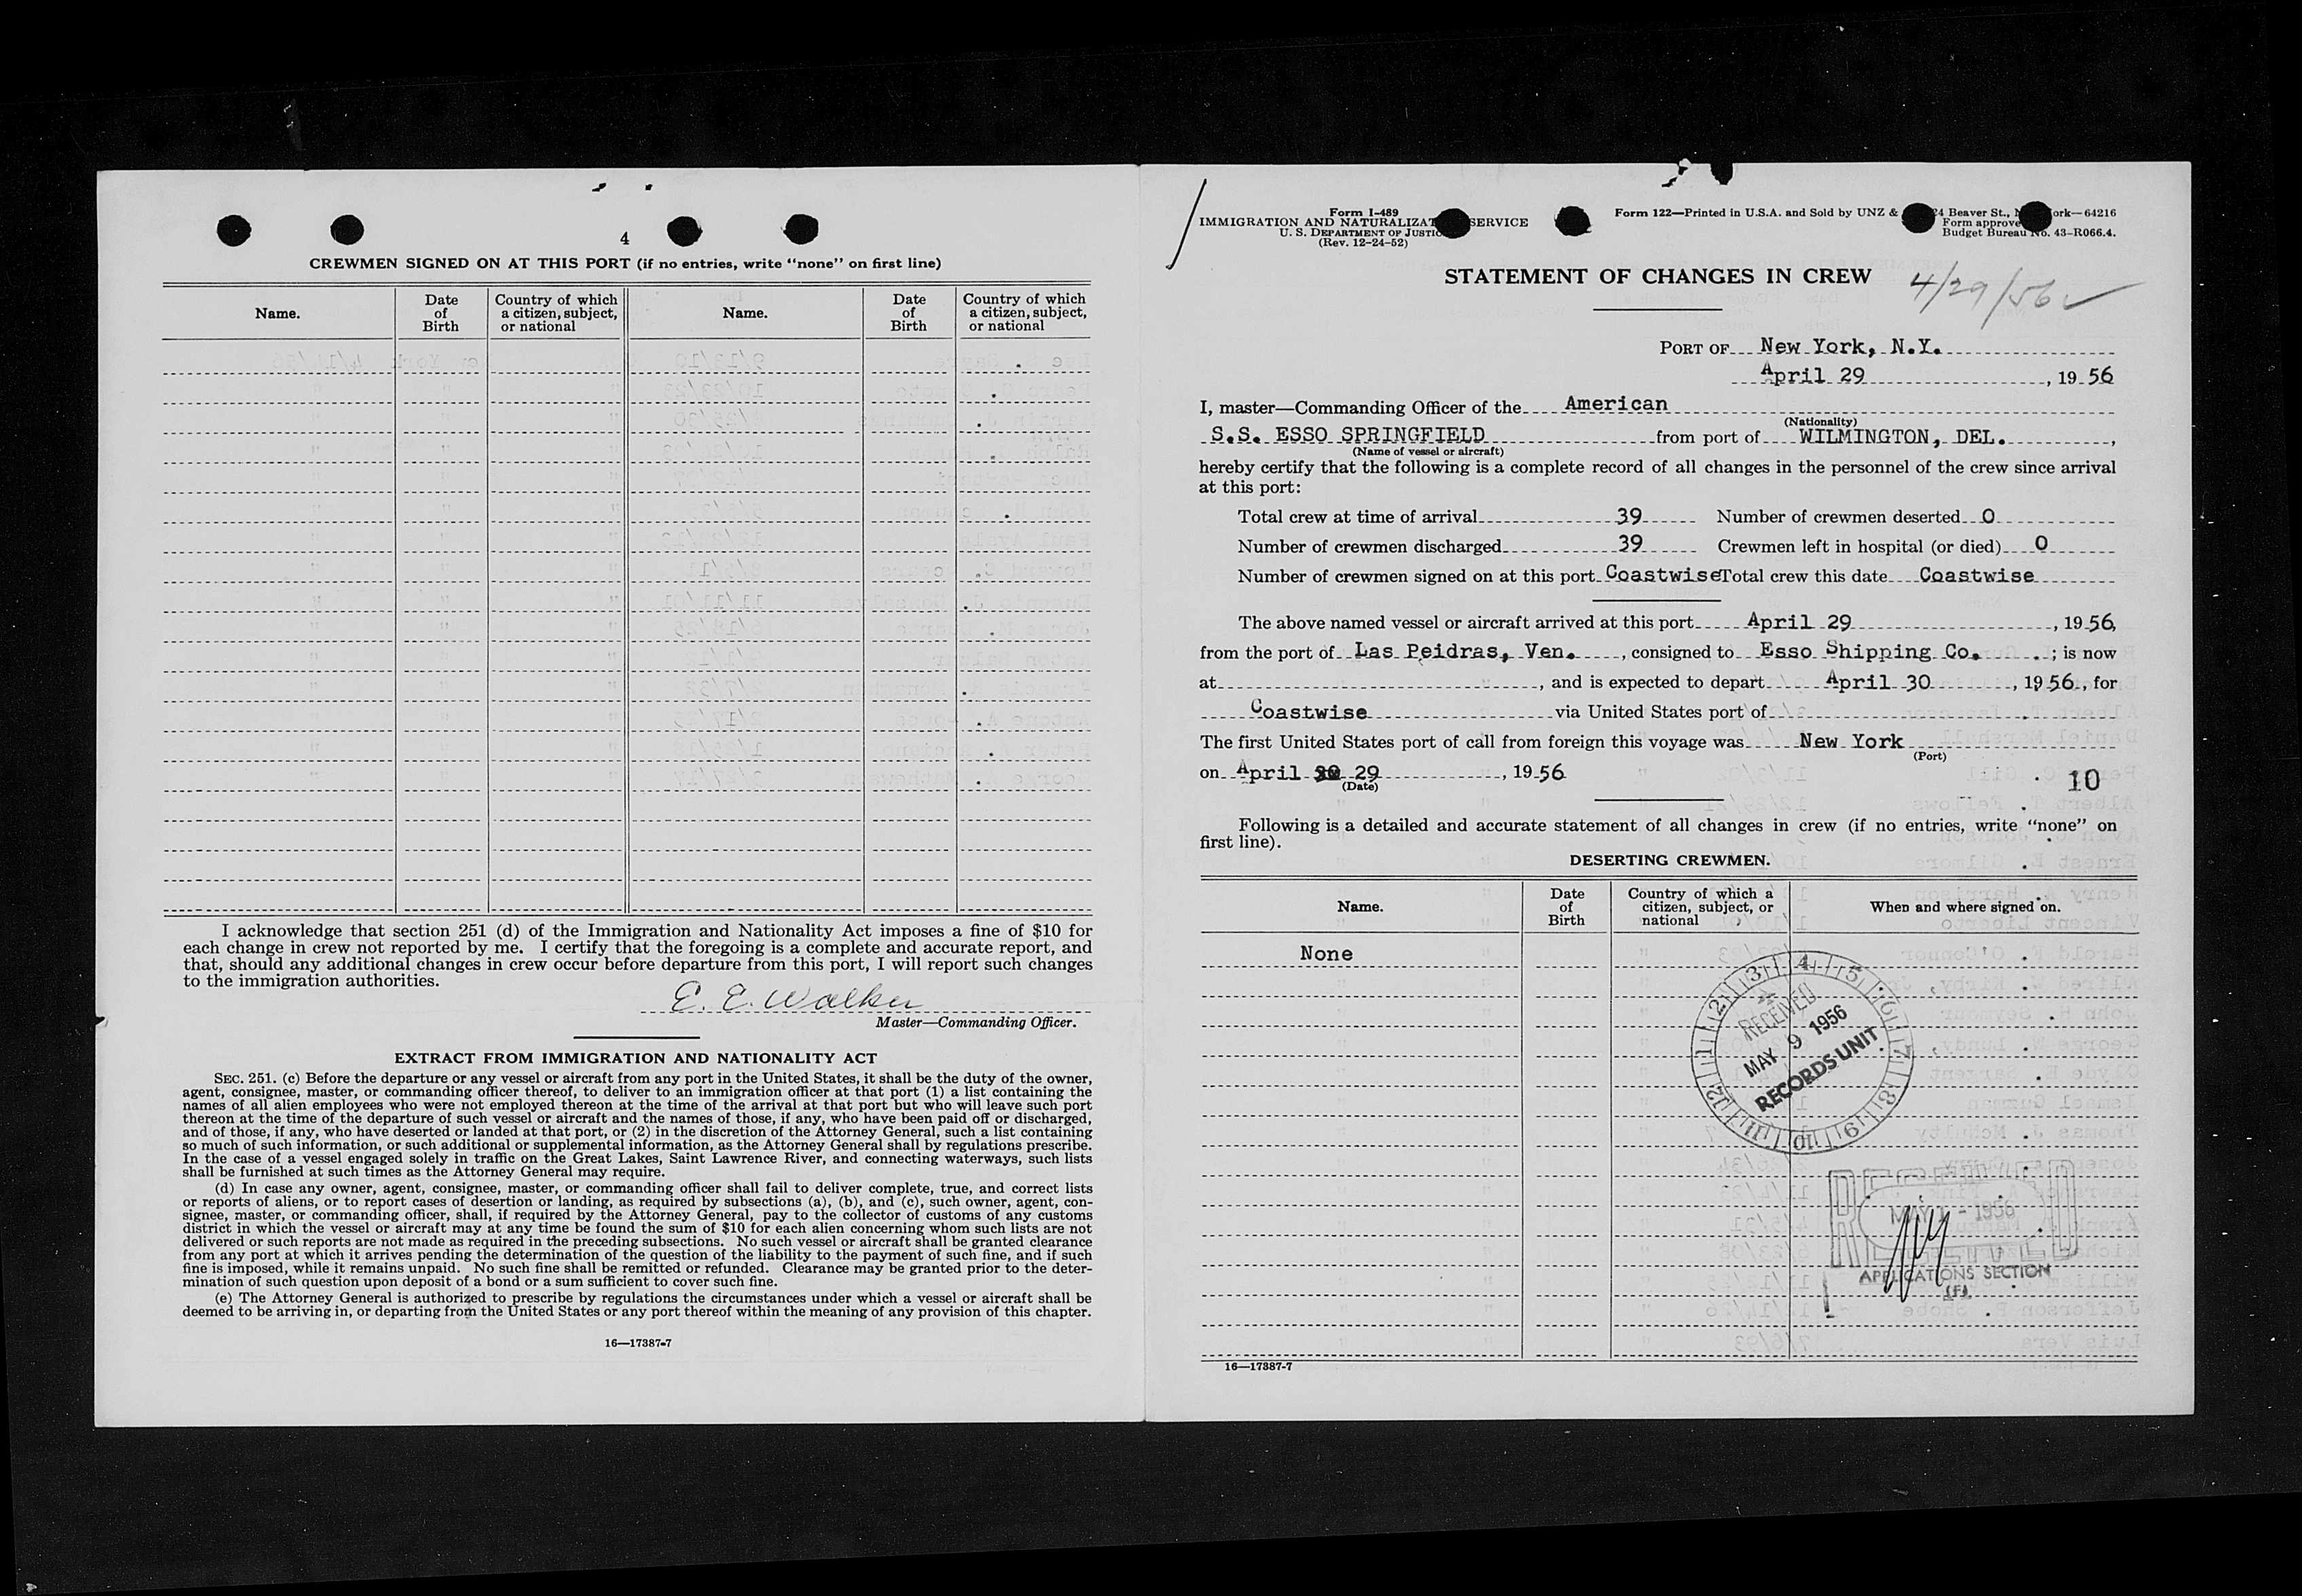 4
CREWMEN SIGNED ON AT THIS PORT (if no entries, write “none” on first line)
Name. Date of Birth Country of which a citizen, subject, or national Name. Date of Birth Country of which a citizen, subject, or national
I acknowledge that section 251 (d) of the Immigration and Nationality Act imposes a fine of $10 for
each change in crew not reported by me. I certify that the foregoing is a complete and accurate report, and
that, should any additional changes in crew occur before departure from this port, I will report such changes
to the immigration authorities.
E. E. Walker
Master—Commanding Officer.
EXTRACT FROM IMMIGRATION AND NATIONALITY ACT
SEC. 251. (c) Before the departure or any vessel or aircraft from any port in the United States, it shall be the duty of the owner,
agent, consignee, master, or commanding officer thereof, to deliver to an immigration officer at that port (1) a list containing the
names of all alien employees who were not employed thereon at the time of the arrival at that port but who will leave such port
thereon at the time of the departure of such vessel or aircraft and the names of those, if any, who have been paid off or discharged,
and of those, if any, who have deserted or landed at that port, or (2) in the discretion of the Attorney General, such a list containing
so much of such information, or such additional or supplemental information, as the Attorney General shall by regulations prescribe.
In the case of a vessel engaged solely in traffic on the Great Lakes, Saint Lawrence River, and connecting waterways, such lists
shall be furnished at such times as the Attorney General may require.
(d) In case any owner, agent, consignee, master, or commanding officer shall fail to deliver complete, true, and correct lists
or reports of aliens, or to report cases of desertion or landing, as required by subsections (a), (b), and (c), such owner, agent, con-
signee, master, or commanding officer, shall, if required by the Attorney General, pay to the collector of customs of any customs
district in which the vessel or aircraft may at any time be found the sum of $10 for each alien concerning whom such lists are not
delivered or such reports are not made as required in the preceding subsections. No such vessel or aircraft shall be granted clearance
from any port at which it arrives pending the determination of the question of the liability to the payment of such fine, and if such
fine is imposed, while it remains unpaid. No such fine shall be remitted or refunded. Clearance may be granted prior to the deter-
mination of such question upon deposit of a bond or a sum sufficient to cover such fine.
(e) The Attorney General is authorized to prescribe by regulations the circumstances under which a vessel or aircraft shall be
deemed to be arriving in, or departing from the United States or any port thereof within the meaning of any provision of this chapter.
16—17387-7
Form I-489
IMMIGRATION AND NATURALIZAT SERVICE
U. S. DEPARTMENT OF JUSTIC
(Rev. 12-24-52)
Form 122—Printed in U.S.A. and Sold by UNZ & 24 Beaver St., N ork—64216
Form approve
Budget Bureau No. 43-R066.4.
STATEMENT OF CHANGES IN CREW
4/29/56
PORT OF New York, N.Y.
April 29, 19 56
I, master—Commanding Officer of the American
(Nationality)
S.S. ESSO SPRINGFIELD from port of WILMINGTON, DEL.,
(Name of vessel or aircraft)
hereby certify that the following is a complete record of all changes in the personnel of the crew since arrival
at this port:
Total crew at time of arrival 39 Number of crewmen deserted 0
Number of crewmen discharged 39 Crewmen left in hospital (or died) 0
Number of crewmen signed on at this port Coastwise Total crew this date Coastwise
The above named vessel or aircraft arrived at this port April 29, 19 56,
from the port of Las Peidras, Ven., consigned to Esso Shipping Co. ; is now
at , and is expected to depart April 30, 19 56, for
Coastwise via United States port of
The first United States port of call from foreign this voyage was New York
(Port)
on April 29, 19 56
(Date)
10
Following is a detailed and accurate statement of all changes in crew (if no entries, write “none” on
first line).
DESERTING CREWMEN.
Name. Date of Birth Country of which a citizen, subject, or national When and where signed on.
None
1 2 3 4 5 6 7 8 9 10 11 12
RECEIVED
MAY 9 1956
RECORDS UNIT
RECEIVED
MAY 1 - 1956
APPLICATIONS SECTION
(F)
16—17387-7